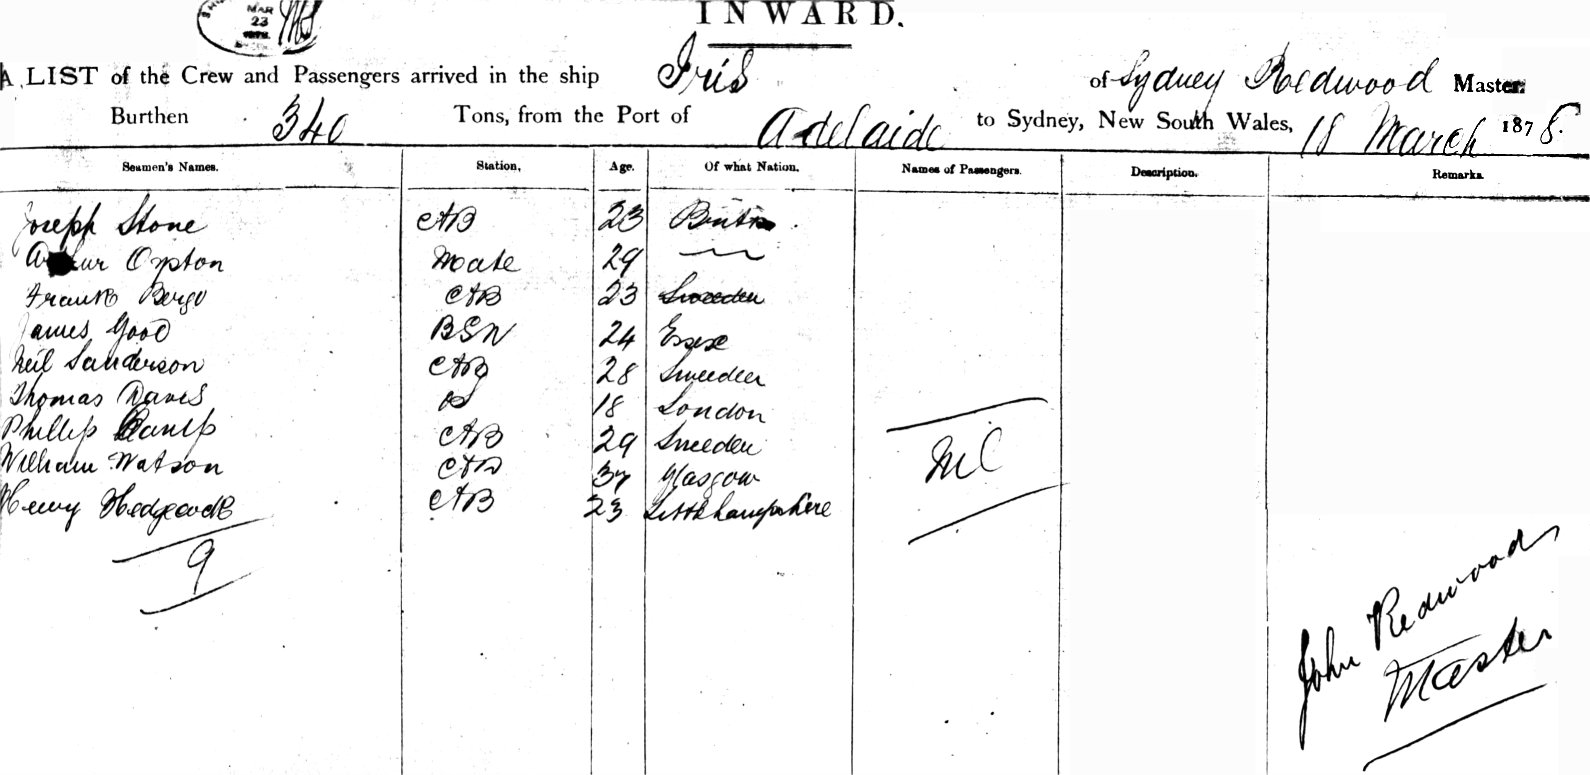 MAR
23
INWARD.
A LIST of the Crew and Passengers arrived in the ship Iris of Sydney Redwood Master
Burthen 340 Tons, from the Port of Adelaide to Sydney, New South Wales, 18 March 1878.
Seamen's Names. Station, Age. Of what Nation. Names of Passengers. Description. Remarks
Joseph Stone AB 23
Arthur Orpton Mate 29
Frank AB 23 Sweeden
James Good BSN 24 Essex
Neil Sanderson AB 28 Sweeden
Thomas Davis 18 London
Phillip AB 29 Sweeden
William Watson AB Glasgow
Henry Hedgecock AB 23
Nil
9
John Redwood
Master